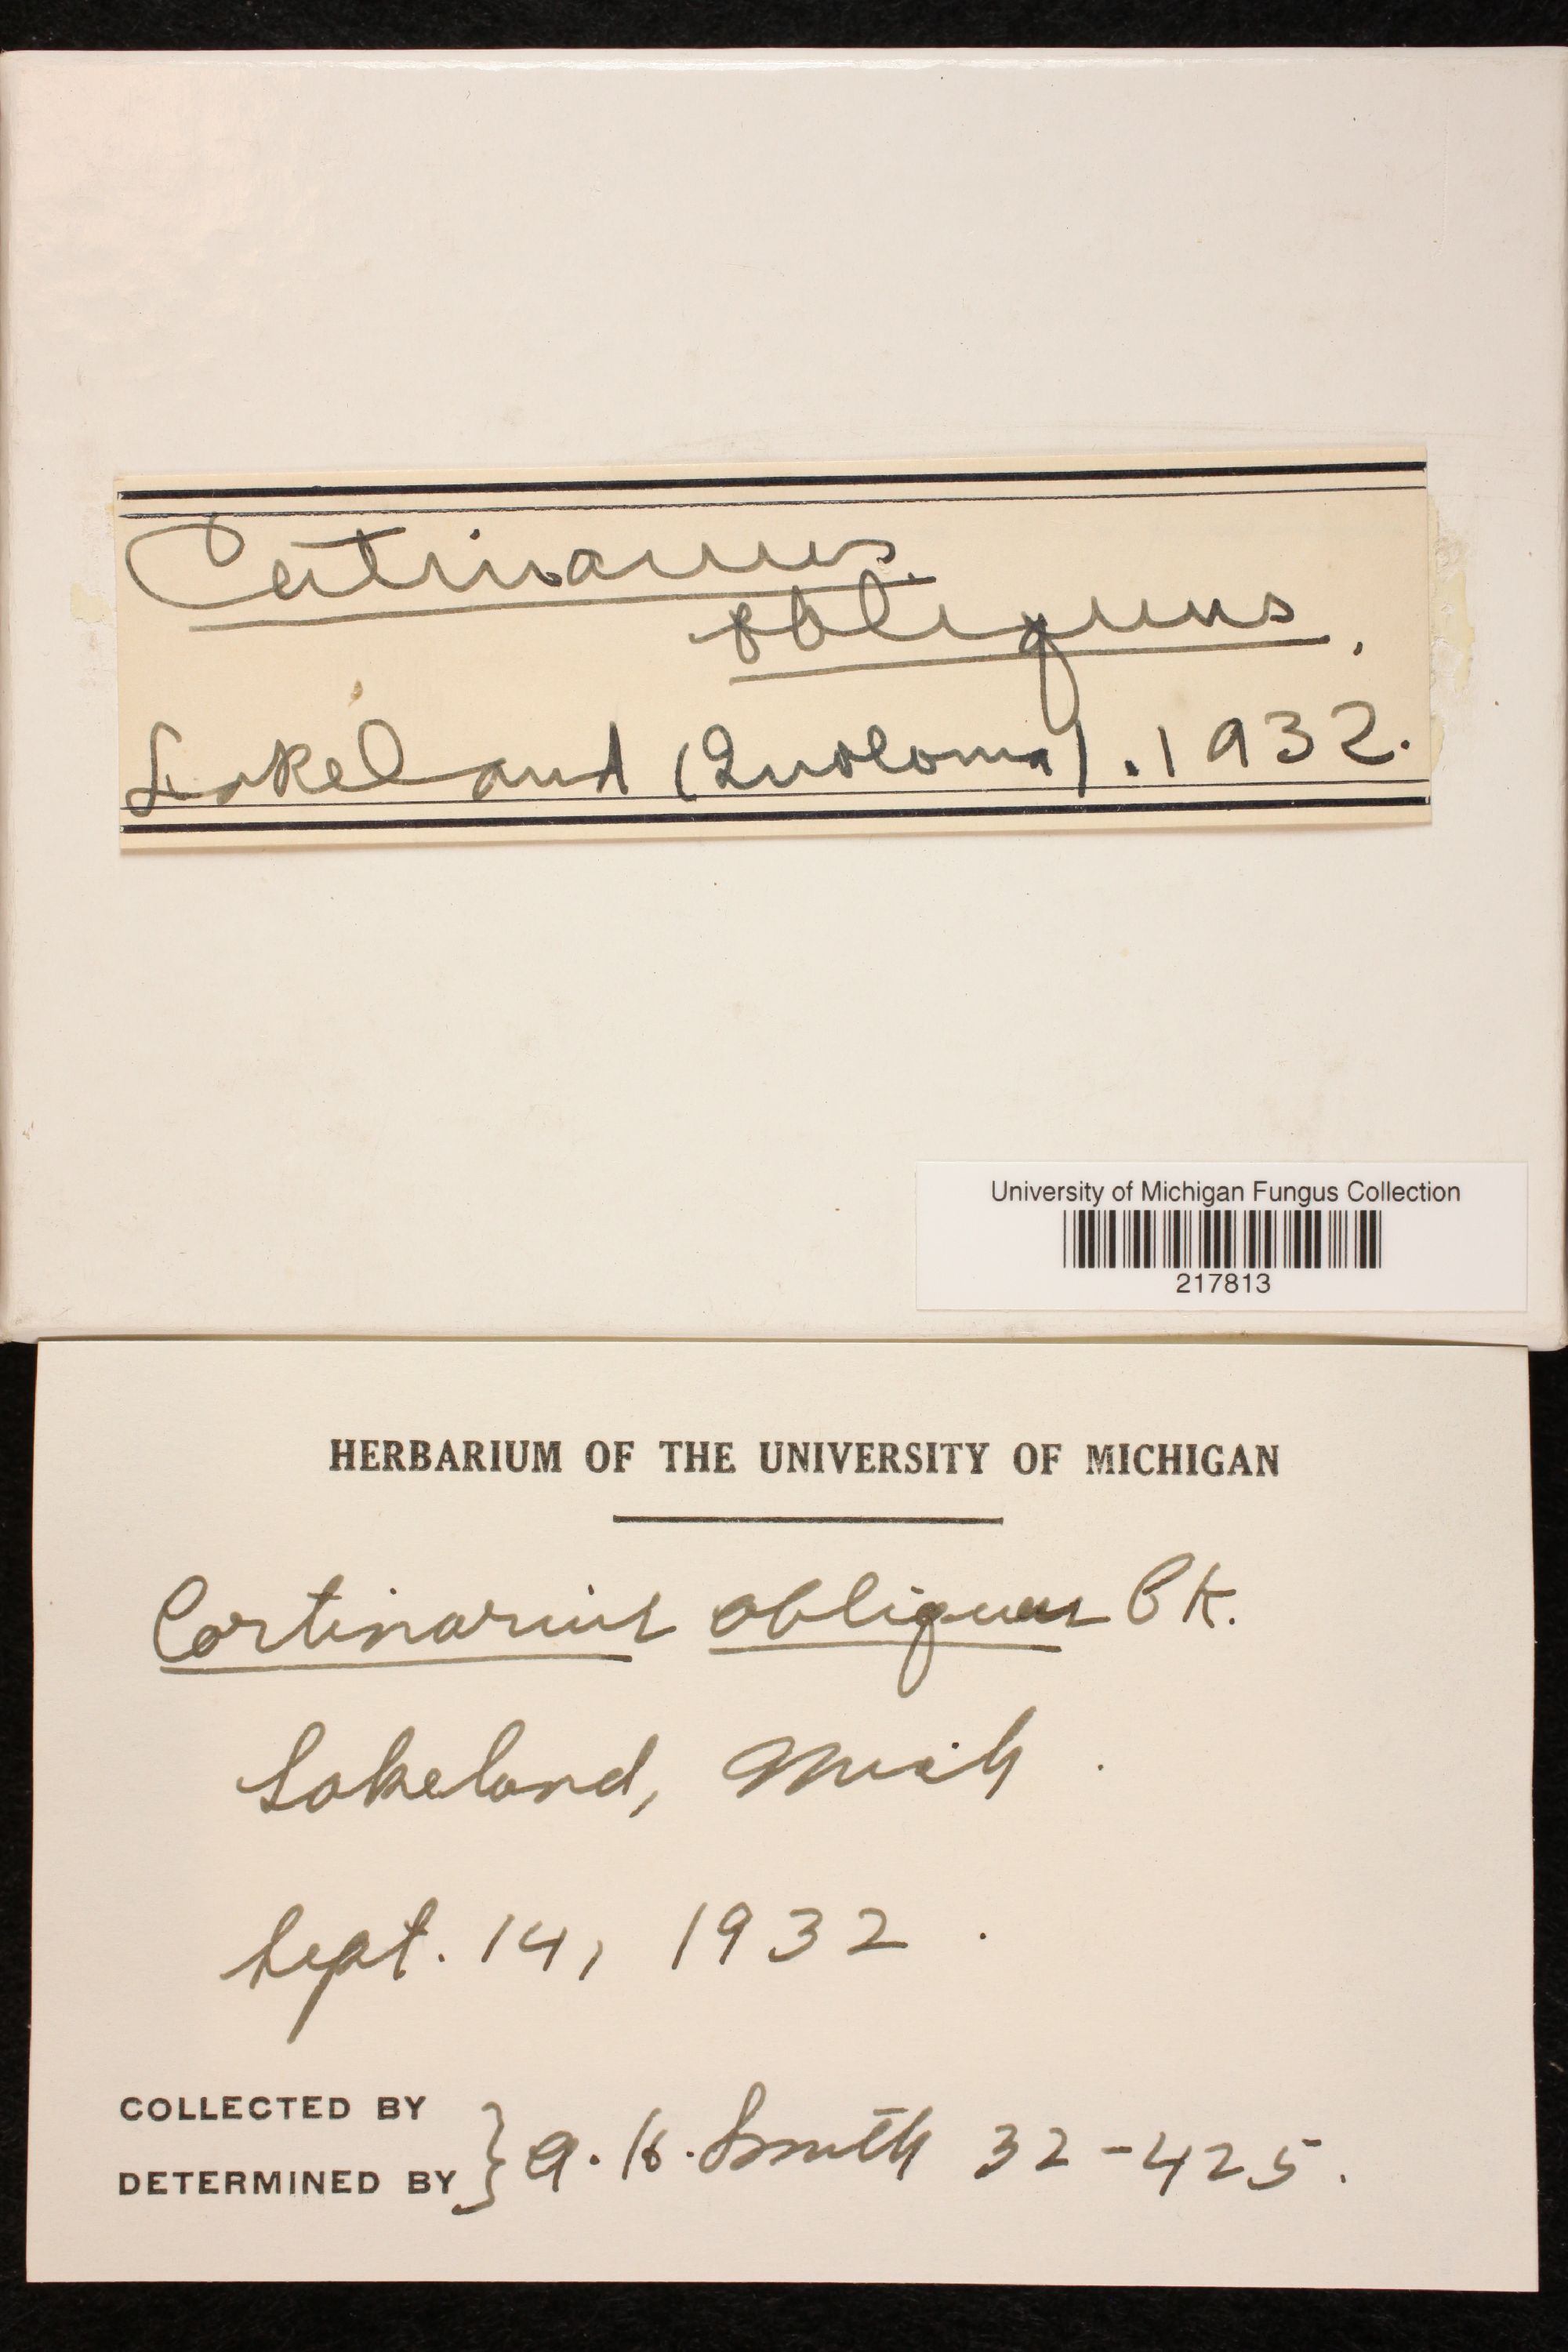 Cortinarius
obliquus.
Lakeland (Inoloma). 1932.
University of Michigan Fungus Collection
217813
HERBARIUM OF THE UNIVERSITY OF MICHIGAN
Cortinarius obliquus Pk.
Lakeland, Mich.
Sept. 14, 1932.
COLLECTED BY
DETERMINED BY } A. H. Smith 32-425.